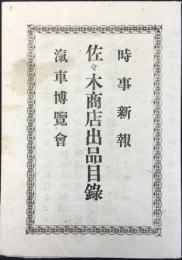 時事新報
佐々木商店出品目錄
滊車博覽會